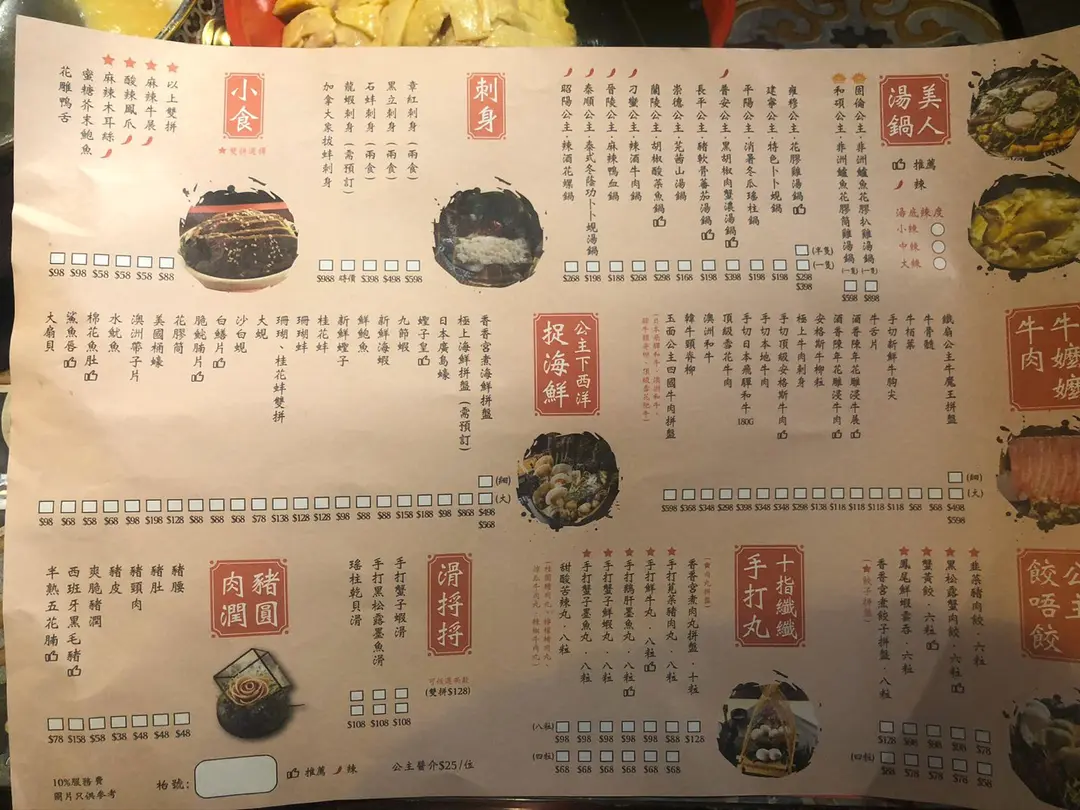 美人
湯鍋
推薦
辣
湯底辣度
小辣
中辣
大辣
固倫公主．非洲鱸魚花膠扒雞湯鍋 (一隻) $898
和碩公主．非洲鱸魚花膠筒雞湯鍋 (一隻) $598
雍穆公主．花膠雞湯鍋 (半隻) $298 (一隻) $398
建寧公主．特色卜卜蜆鍋 $198
平陽公主．消暑冬瓜瑤柱鍋 $198
普安公主．黑胡椒肉蟹濃湯鍋 $398
長平公主．豬軟骨蕃茄湯鍋 $198
崇德公主．芫茜山湯鍋 $168
蘭陵公主．胡椒酸菜魚鍋 $298
刁蠻公主．辣酒牛肉鍋 $268
晉陵公主．麻辣鴨血鍋 $188
泰順公主．泰式冬陰功卜卜蜆湯鍋 $198
昭陽公主．辣酒花螺鍋 $268
刺身
章紅刺身(兩食) $598
黑立刺身(兩食) $498
石蚌刺身(兩食) $398
龍蝦刺身(需預訂) 時價
加拿大象拔蚌刺身 $988
小食
★雙拼選擇
★以上雙拼 $88
★麻辣牛展 $58
★酸辣鳳爪 $58
★麻辣木耳絲 $58
蜜糖芥末鮑魚 $98
花雕鴨舌 $98
牛嬤嬤
牛肉
鐵扇公主牛魔王拼盤 (細) $498 (大) $598
牛骨髓 $68
牛栢葉 $68
手切新鮮牛胸尖 $118
牛舌片 $118
酒香陳年花雕浸牛展 $118
酒香陳年花雕浸牛肉 $118
安格斯牛柳粒 $138
極上牛肉刺身 $298
手切頂級安格斯牛肉 $348
手切本地牛肉 $348
手切日本飛驒和牛 180G $398
頂級雪花牛肉 $298
澳洲和牛 $348
韓牛頸脊柳 $368
玉面公主四國牛肉拼盤 $598
公主下西洋
捉海鮮
香香宮煮海鮮拼盤 (細) $498 (大) $568
極上海鮮拼盤(需預訂) $868
日本廣島蠔 $98
蟶子皇 $188
九節蝦 $158
新鮮海蝦 $88
新鮮鮑魚 $88
新鮮蟶子 $98
桂花蚌 $128
珊瑚蚌 $128
珊瑚、桂花蚌雙拼 $138
大蜆 $78
沙白蜆 $68
白鱔片 $88
脆鯇腩片 $88
花膠筒 $128
美國桶蠔 $198
澳洲帶子片 $98
水魷魚 $68
棉花魚肚 $58
鯊魚唇 $68
大扇貝 $98
公主
餃唔餃
★韭菜豬肉餃．六粒 $78 $58
★黑松露蟹肉餃．六粒 $98 $78
★蟹黃餃．六粒 $98 $78
★鳳尾鮮蝦雲吞．六粒
香香宮煮餃子拼盤．八粒 $128
(★餃子拼盤)
(四粒)
十指纖纖
手打丸
香香宮煮肉丸拼盤．十粒 $128
(★肉丸拼盤)
★手打芫荽豬肉丸．八粒 $88 $68
★手打鮮牛丸．八粒 $98 $68
★手打鵝肝墨魚丸．八粒 $98 $68
★手打蟹子鮮蝦丸．八粒 $98 $68
★手打蟹子墨魚丸．八粒 $98 $68
甜酸苦辣丸．八粒 $98 $68
(八粒)
(四粒)
滑捋捋
可任選兩款
(雙拼$128)
手打蟹子蝦滑 $108
手打黑松露墨魚滑 $108
瑤柱乾貝滑 $108
豬圓
肉潤
豬腰 $48
豬肚 $48
豬頸肉 $48
豬皮 $38
爽脆豬潤 $58
西班牙黑毛豬 $158
半熟五花腩 $78
10%服務費
圖片只供參考
枱號：
推薦 辣
公主醬介$25/位